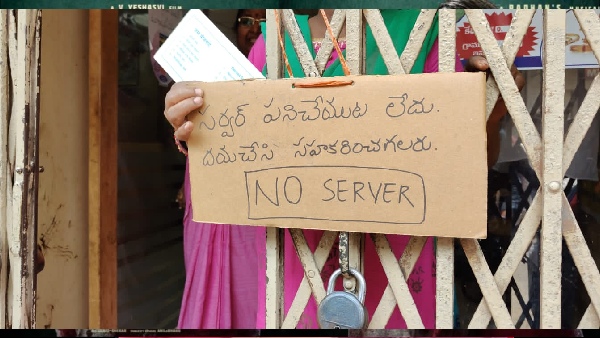 A V. YESHASVI FILM
A RADHAN'S MUSICAL
సర్వర్ పనిచేయుట లేదు.
దయచేసి సహకరించగలరు.
NO SERVER